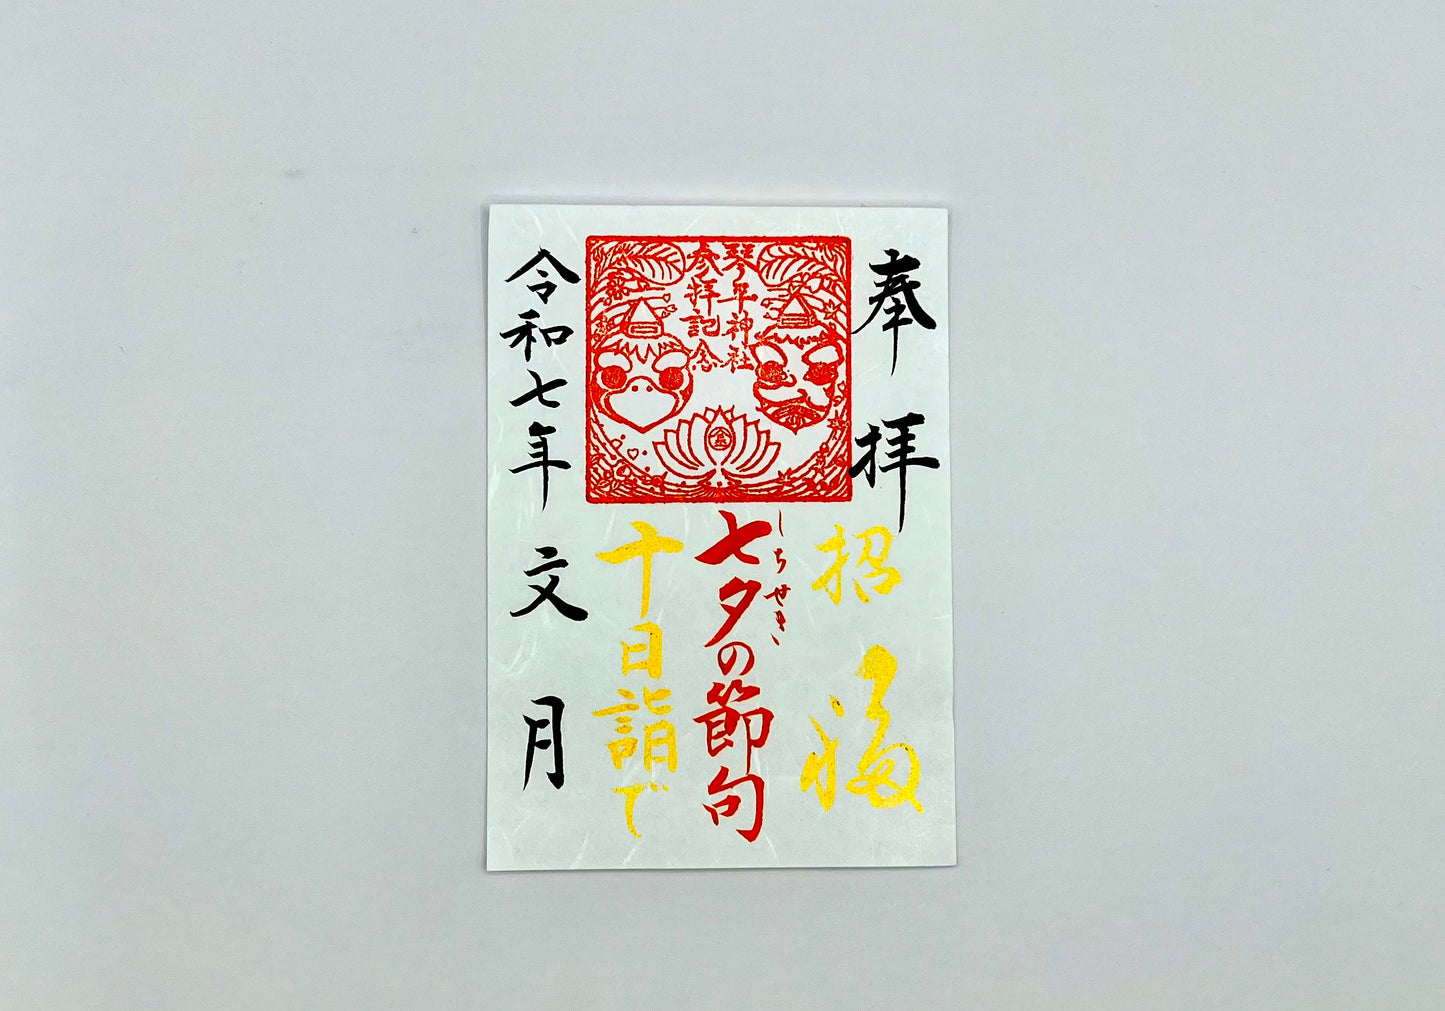 奉拝
招福
琴平神社
参拝記念
金
しちせき
七夕の節句
十日詣で
令和七年文月